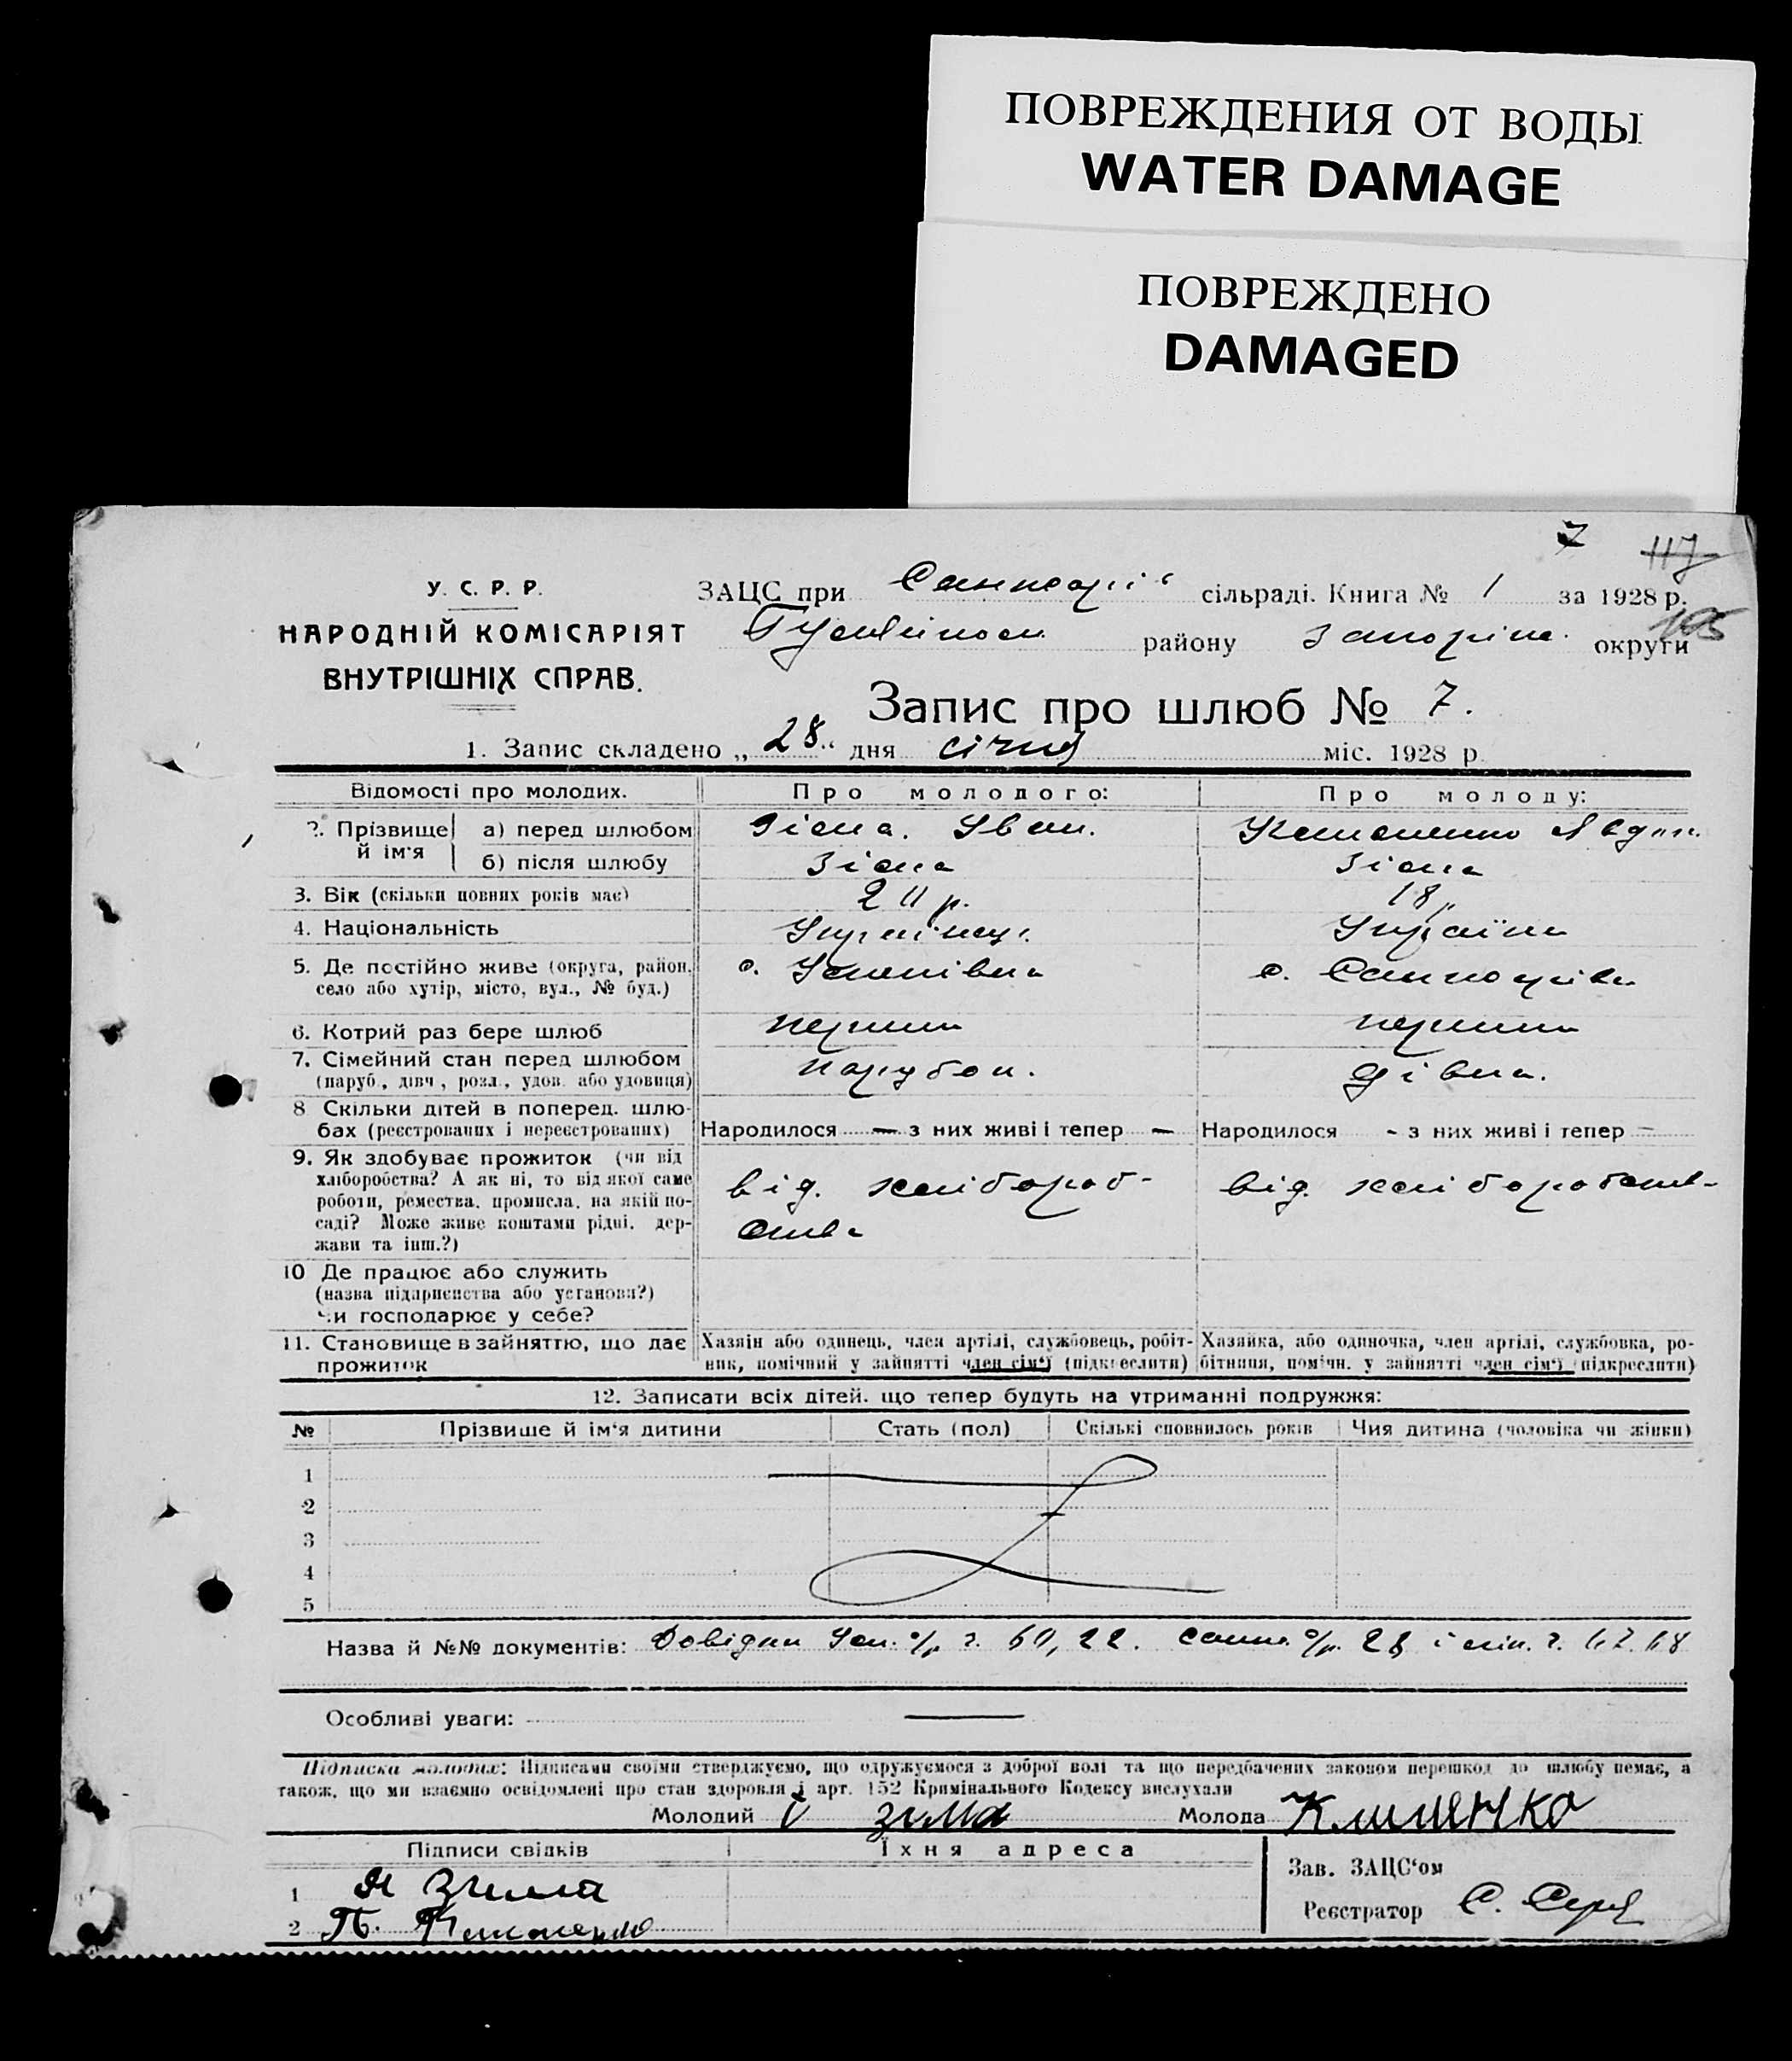 ПОВРЕЖДЕНИЯ ОТ ВОДЫ
WATER DAMAGE
ПОВРЕЖДЕНО
DAMAGED
7 117
У. С. Р. Р.
НАРОДНІЙ КОМІСАРІЯТ
ВНУТРІШНІХ СПРАВ.
ЗАЦС при сільраді. Книга № 1 за 1928 р.
району Запоріж. округи
Запис про шлюб № 7.
1. Запис складено „28“ дня січня міс. 1928 р.
Відомості про молодих. Про молодого: Про молоду:
2. Прізвище й ім'я а) перед шлюбом Зіма. Іван.
б) після шлюбу Зіма Зіма
3. Вік (скільки повних років має) 18 р.
4. Національність Українец. Україн
5. Де постійно живе (округа, район, село або хутір, місто, вул., № буд.) с. Успенівка с.
6. Котрий раз бере шлюб первий первий
7. Сімейний стан перед шлюбом (паруб., дівч., розл., удов. або удовиця) парубок. дівка.
8 Скільки дітей в поперед. шлюбах (реєстрованих і нереєстрованих) Народилося — з них живі і тепер — Народилося - з них живі і тепер —
9. Як здобуває прожиток (чи від хліборобства? А як ні, то від якої саме роботи, ремества, промисла, на якій посаді? Може живе коштами рідні, держави та інш.?) від. хлібороб-ства від. хліборобств-
10 Де працює або служить (назва підприємства або установи?) Чи господарює у себе?
11. Становище в зайняттю, що дає прожиток Хазяїн або одинець, член артілі, службовець, робітник, помічний у зайнятті член сім'ї (підкреслити) Хазяйка, або одиночка, член артілі, службовка, робітниця, помічн. у зайнятті член сім'ї (підкреслити)
12. Записати всіх дітей, що тепер будуть на утриманні подружжя:
№ Прізвище й ім'я дитини Стать (пол) Скількі сповнилось років Чия дитина (чоловіка чи жінки)
1
2
3
4
5
Назва й №№ документів: Довідки Усп. с/р
Особливі уваги: —
Підписка молодих: Підписами своїми стверджуємо, що одружуємося з доброї волі та що передбачених законом перешкод до шлюбу немає, а
також, що ми взаємно освідомлені про стан здоровля і арт. 152 Кримінального Кодексу вислухали
Молодий І Зима Молода Клименко
Підписи свідків Їхня адреса Зав. ЗАЦС'ом
1 Я Зима
2 П. Клименко Реєстратор С.